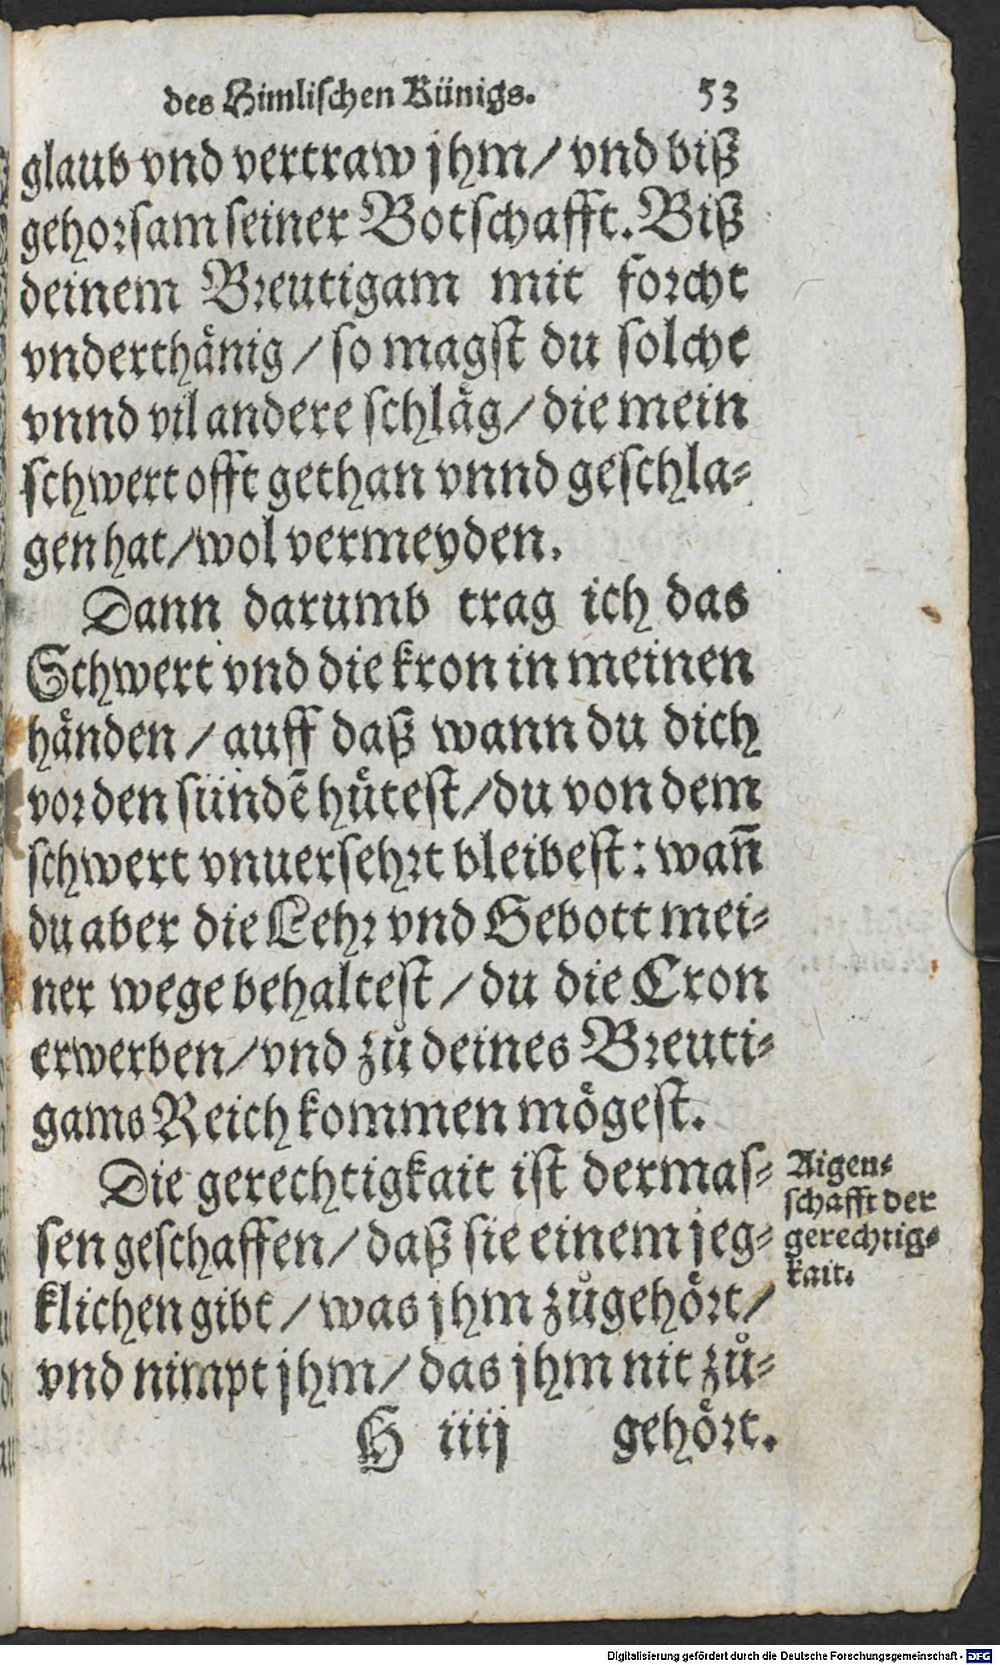 des Himlischen Künigs. 53
glaub vnd vertraw jhm/ vnd biß
gehorsam seiner Botschafft. Biß
deinem Breutigam mit forcht
vnderthänig/ so magst du solche
vnnd vil andere schläg/ die mein
schwert offt gethan vnnd geschla-
gen hat/ wol vermeyden.
Dann darumb trag ich das
Schwert vnd die kron in meinen
händen/ auff daß wann du dich
vor den sündē hütest/ du von dem
schwert vnuersehrt bleibest: wañ
du aber die Lehr vnd Gebott mei-
ner wege behaltest/ du die Cron
erwerben/ vnd zů deines Breuti-
gams Reich kommen mögest.
Die gerechtigkait ist dermas-
sen geschaffen/ daß sie einem jeg-
klichen gibt/ was jhm zůgehört/
vnd nimpt jhm/ das jhm nit zů-
H iiij gehört.
Aigen-
schafft der
gerechtig-
kait.
Digitalisierung gefördert durch die Deutsche Forschungsgemeinschaft - DFG